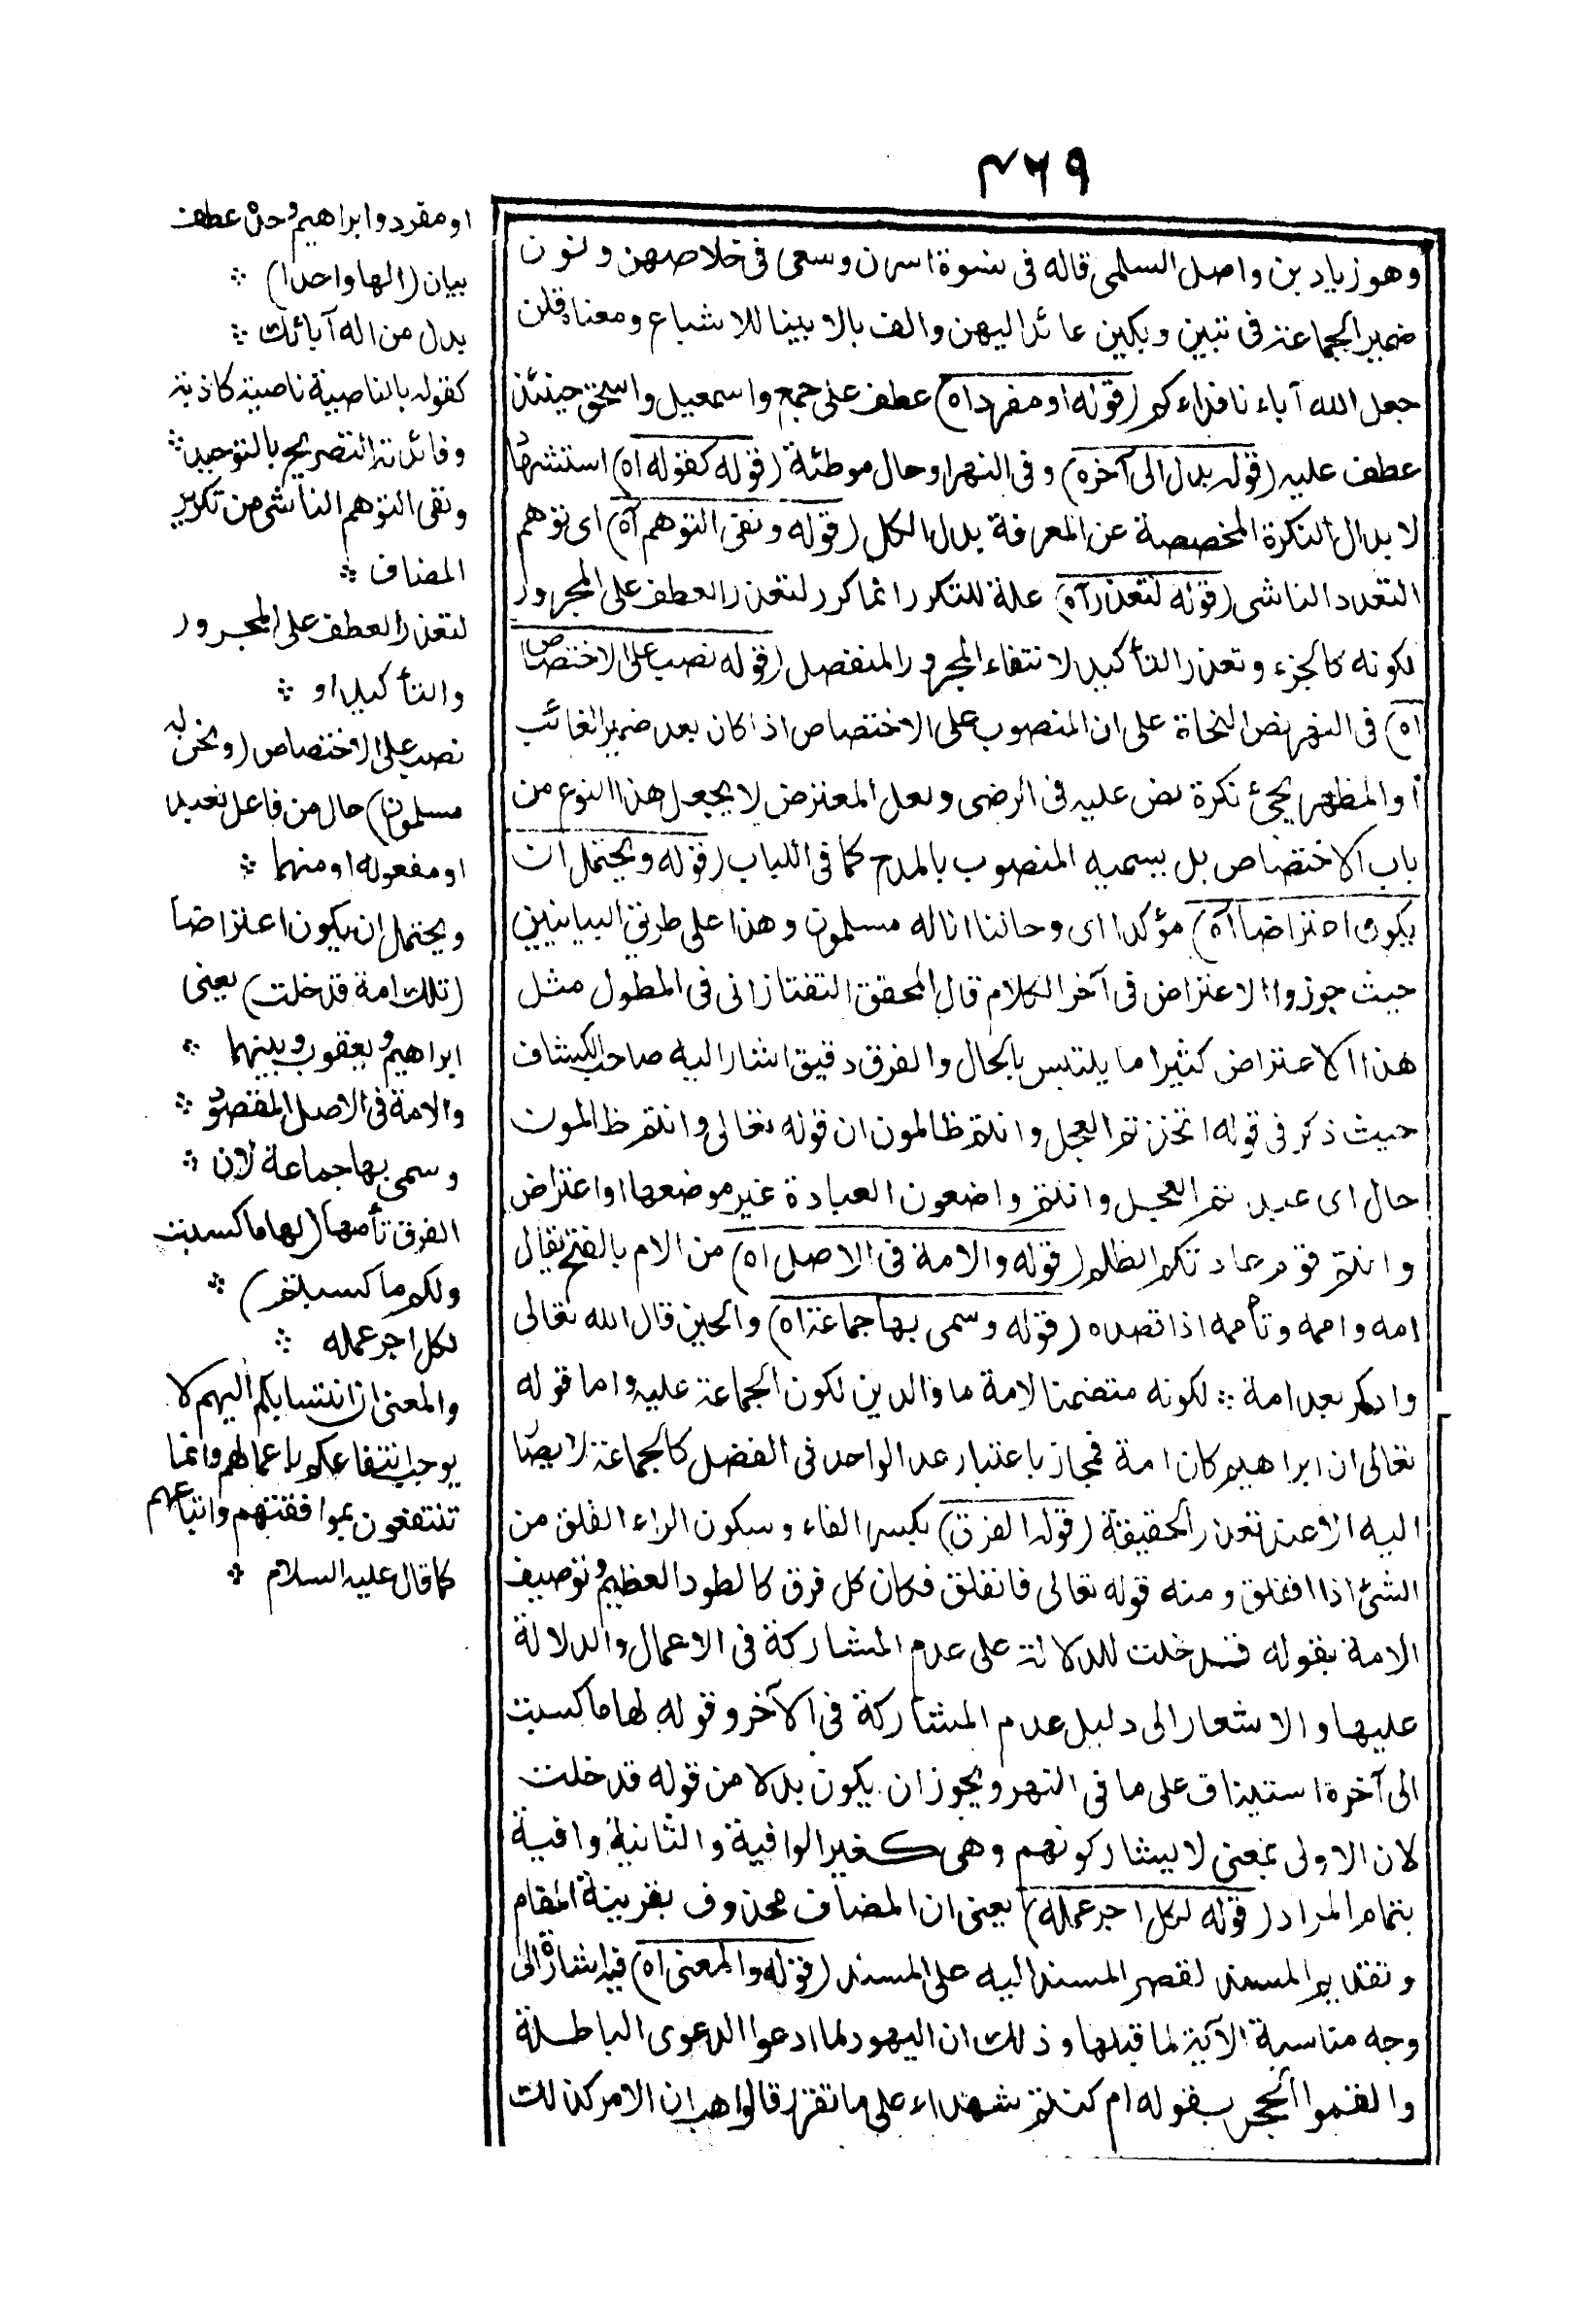 ٤٦٩
وهو زياد بن واصل السلمى قاله فى نسوة اسرن وسعى فى خلاصهن ونون
ضمير الجماعة فى تبين وبكين عائد اليهن والف بالابينا للاشباع ومعناه قلن
جعل الله آباء نا فداء كم (قوله او مفرد اه) عطف على جمع واسمعيل واسحٰق حينئذ
عطف عليه (قوله بدل الى آخره) وفى النهر او حال موطئة (قوله كقوله اه) استشهاد
لابدال النكرة المخصصة عن المعرفة بدل الكل (قوله ونفى التوهم آه) اى توهم
التعدد الناشى (قوله لتعذر آه) علة للتكرر انما كرر لتعذر العطف على المجرور
لكونه كالجزء وتعذر التأكيد لانتفاء المجرور المنفصل (قوله نصب على الاختصاص
اه) فى النهر نص النحاة على ان المنصوب على الاختصاص اذا كان بعد ضمير الغائب
او المظهر يجئ نكرة نص عليه فى الرضى ولعل المعترض لا يجعل هذا النوع من
باب الاختصاص بل يسميه المنصوب بالمدح كما فى اللباب (قوله ويحتمل ان
يكون اعتراضا آه) مؤكدا اى وحالنا انا له مسلمون وهذا على طريق البيانيين
حيث جوزوا الاعتراض فى آخر الكلام قال المحقق التفتازانى فى المطول مثل
هذا الاعتراض كثيرا ما يلتبس بالحال والفرق دقيق اشار اليه صاحب الكشاف
حيث ذكر فى قوله اتخذتم العجل وانتم ظالمون ان قوله تعالى وانتم ظالمون
حال اى عبدتم العجل وانتم واضعون العبادة غير موضعها او اعتراض
وانتم قوم عادتكم الظلم (قوله والامة فى الاصل اه) من الام بالفتح يقال
امه واممه وتأممه اذا قصده (قوله وسمى بها جماعة اه) والحين قال الله تعالى
وادكر بعد امة ؞ لكونه متضمنا لامة ما والدين لكون الجماعة عليه واما قوله
تعالى ان ابراهيم كان امة فمجاز باعتبار عد الواحد فى الفضل كالجماعة لا يصار
اليه الا عند تعذر الحقيقة (قوله الفرق) بكسر الفاء وسكون الراء الفلق من
الشئ اذا انفلق ومنه قوله تعالى فانفلق فكان كل فرق كالطود العظيم وتوصيف
الامة بقوله قد خلت للدلالة على عدم المشاركة فى الاعمال والدلالة
عليها والاشعار الى دليل عدم المشاركة فى الآخر وقوله لها ما كسبت
الى آخرة استيناف على ما فى النهر ويجوز ان يكون بدلا من قوله قد خلت
لان الاولى بمعنى لا يشاركونهم وهى كغير الوافية والثانية وافية
بتمام المراد (قوله لكل اجر عمله) يعنى ان المضاف محذوف بقرينة المقام
وتقديم المسند لقصر المسند اليه على المسند (قوله والمعنى اه) فيه اشارة الى
وجه مناسبة الآية لما قبلها وذلك ان اليهود لما ادعوا الدعوى الباطلة
والقموا الحجر بقوله ام كنتم شهداء على ما تقرر قالوا هب ان الامر كذلك
او مفرد وابراهيم وحده عطف
بيان (الٰها واحدا) ؞
بدل من الٰه آبائك ؞
كقوله بالناصية ناصية كاذبة
وفائدته التصريح بالتوحيد ؞
ونفى التوهم الناشى من تكرير
المضاف ؞
لتعذر العطف على المجرور
والتأكيد او ؞
نصب على الاختصاص (ونحن له
مسلمون) حال من فاعل نعبد
او مفعوله او منهما ؞
ويحتمل ان يكون اعتراضا
(تلك امة قد خلت) يعنى
ابراهيم ويعقوب وبنيهما ؞
والامة فى الاصل المقصود ؞
وسمى بها جماعة لان ؞
الفرق تأمها (لها ما كسبت
ولكم ما كسبتم) ؞
لكل اجر عمله ؞
والمعنى ان انتسابكم اليهم لا
يوجب انتفاعكم باعمالهم وانما
تنتفعون بموافقتهم واتباعهم
كما قال عليه السلام ؞